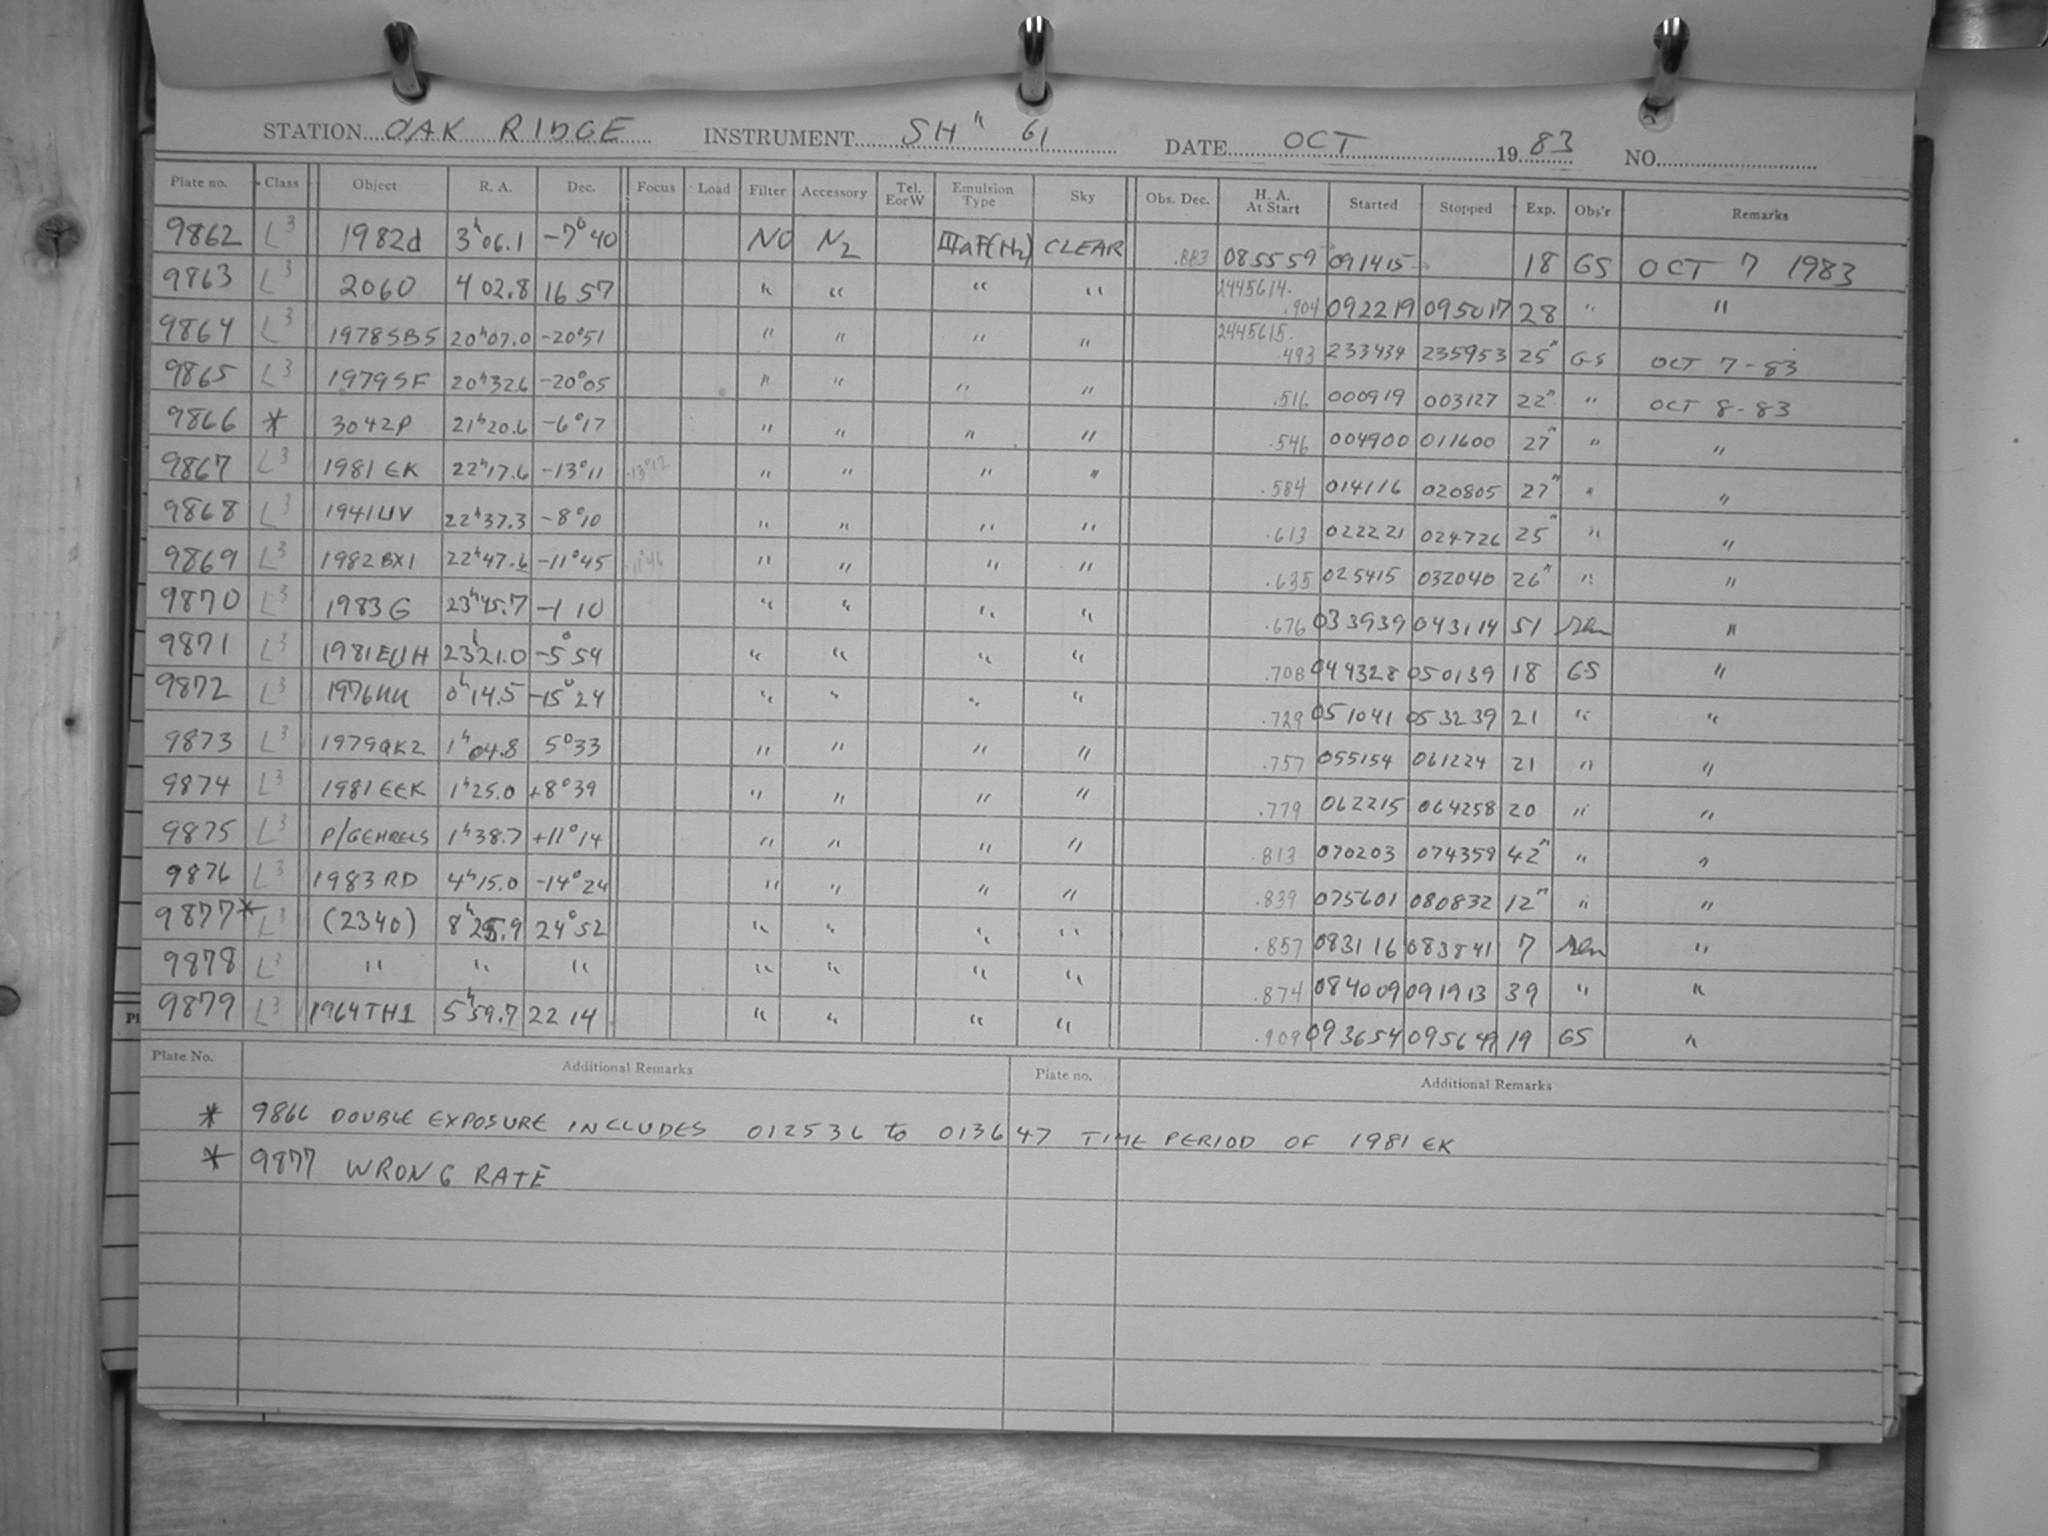 STATION OAK RIDGE INSTRUMENT SH" 61 DATE OCT 19 83 NO.
Plate no. Class Object R. A. Dec. Focus Load Filter Accessory Tel. EorW Emulsion Type Sky Obs. Dec. H. A. At Start Started Stopped Exp. Obs'r Remarks
9862 L3 1982d 3h06.1 -7°40 NO N2 IIIaF(H2) CLEAR .883 085559 091415 18 GS OCT 7 1983
9863 L3 2060 4 02.8 16 57 " " " " 2445614. .904 092219 095017 28 " "
9864 L3 1978SB5 20h07.0 -20°51 " " " " 2445615. .493 233434 235953 25m GS OCT 7-83
9865 L3 1979SF 20h32.6 -20°05 " " " " .516 000919 003127 22m " OCT 8-83
9866 * 3042P 21h20.6 -6°17 " " " " .546 004900 011600 27m " "
9867 L3 1981 EK 22h17.6 -13°11 -13°12 " " " " .584 014116 020805 27m " "
9868 L3 1941UV 22h37.3 -8°10 " " " " .613 022221 024726 25m " "
9869 L3 1982BX1 22h47.6 -11°45 -11°46 " " " " .635 025415 032040 26m " "
9870 L3 1983G 23h45.7 -1 10 " " " " .676 033939 043114 51 "
9871 L3 1981EUH 23h21.0 -5°54 " " " " .708 044328 050139 18 GS "
9872 L3 1976UU 0h14.5 -15°24 " " " " .729 051041 053239 21 " "
9873 L3 1979QK2 1h04.8 5°33 " " " " .757 055154 061224 21 " "
9874 L3 1981 EEK 1h25.0 +8°39 " " " " .779 062215 064258 20 " "
9875 L3 P/GEHRELS 1h38.7 +11°14 " " " " .813 070203 074359 42m " "
9876 L3 1983 RD 4h15.0 -14°24 " " " " .839 075601 080832 12m " "
9877* L3 (2340) 8h25.9 24°52 " " " " .857 083116 083841 7 "
9878 L3 " " " " " " " .874 084009 091913 39 " "
9879 L3 1964TH1 5h59.7 22 14 " " " " .909 093654 095649 19 GS "
Plate No. Additional Remarks Plate no. Additional Remarks
* 9866 DOUBLE EXPOSURE INCLUDES 012536 to 013647 TIME PERIOD OF 1981 EK
* 9877 WRONG RATE